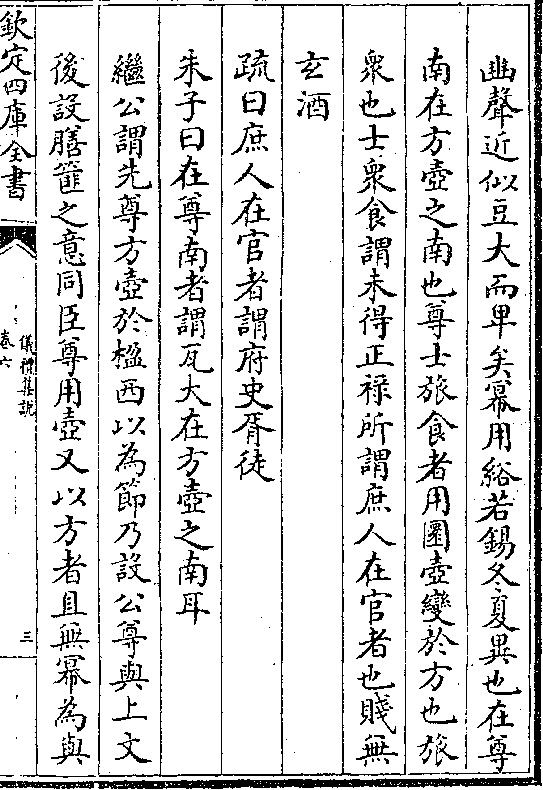 豳聲近似豆大而卑矣冪用綌若錫冬夏異也在尊
南在方壺之南也尊士旅食者用圜壺變於方也旅
衆也士衆食謂未得正祿所謂庶人在官者也賤無
玄酒
疏曰庶人在官者謂府史胥徒
朱子曰在尊南者謂瓦大在方壺之南耳
繼公謂先尊方壺於楹西以為節乃設公尊與上文
後設膳篚之意同臣尊用壺又以方者且無冪為與
欽定四庫全書
儀禮集說
卷六
三